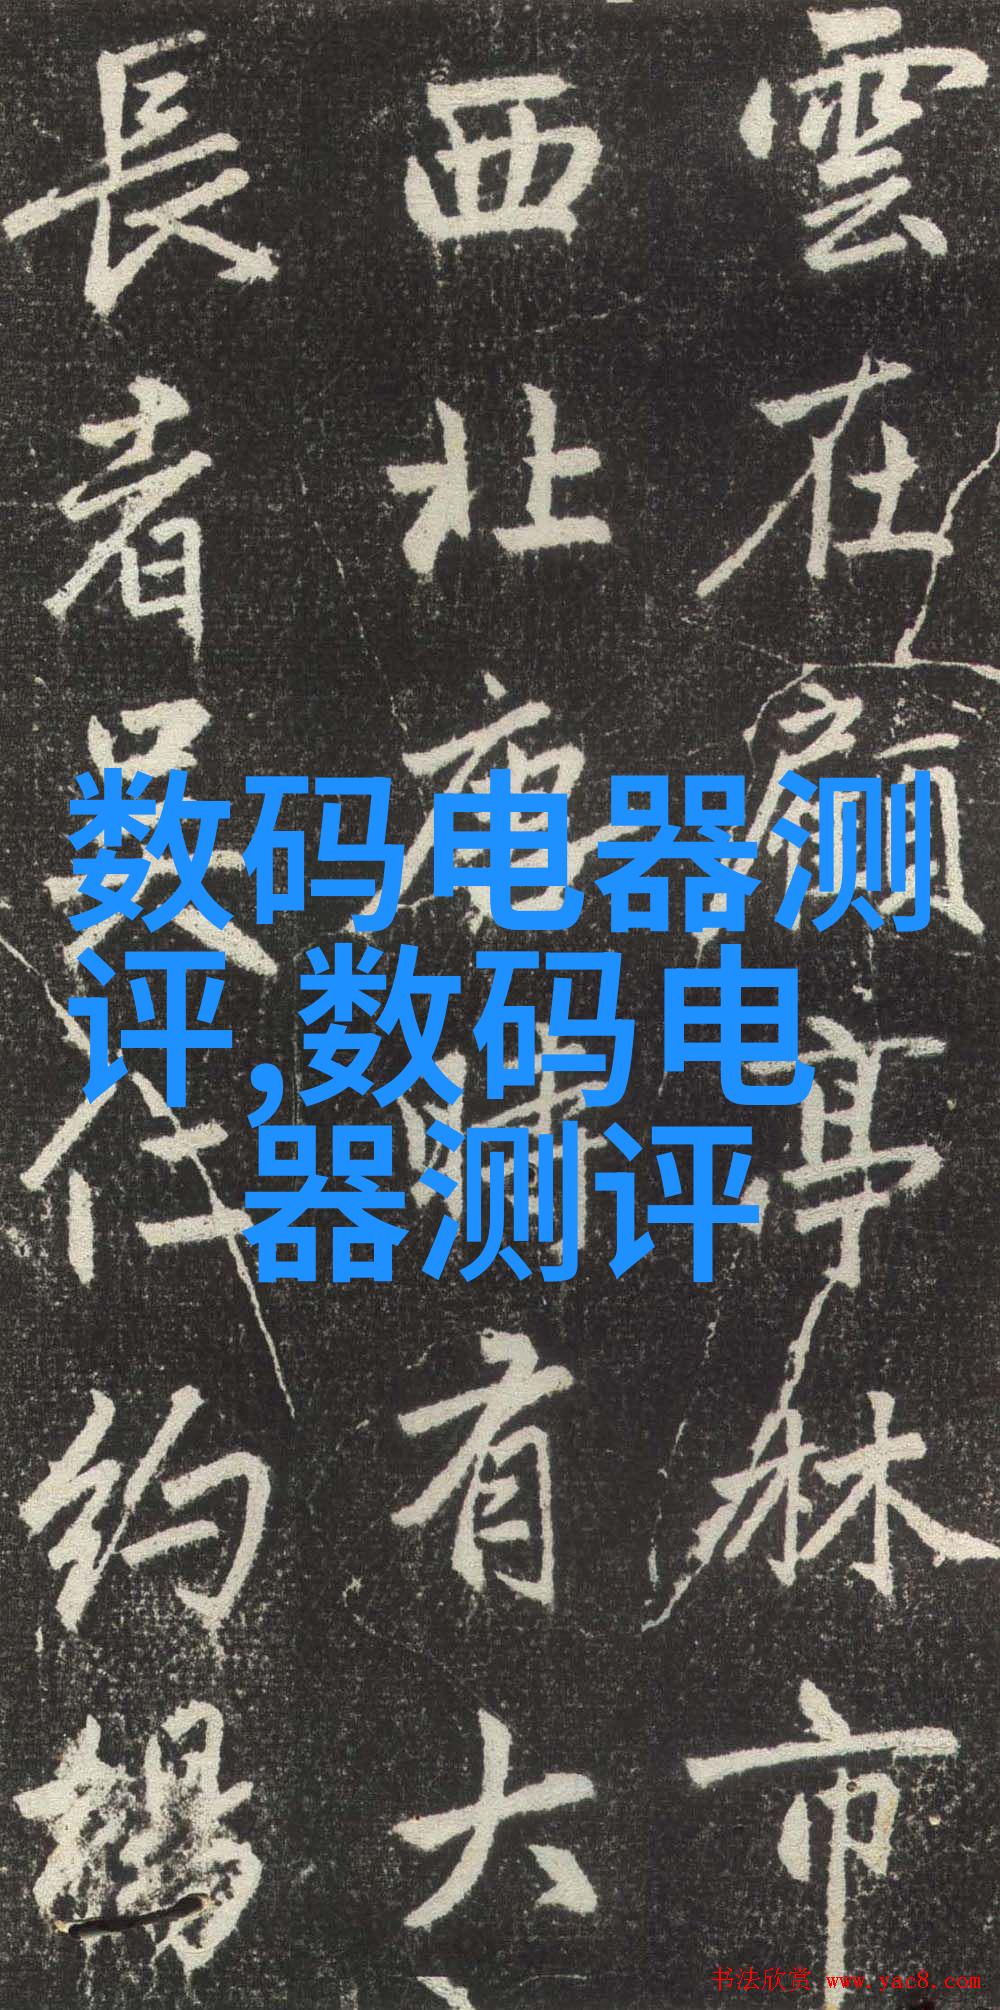 雲在顧亭林市
西北唐時有大
長者吳約
数码电器测
评,数码电
器测评
书法欣赏 www.yac8.com